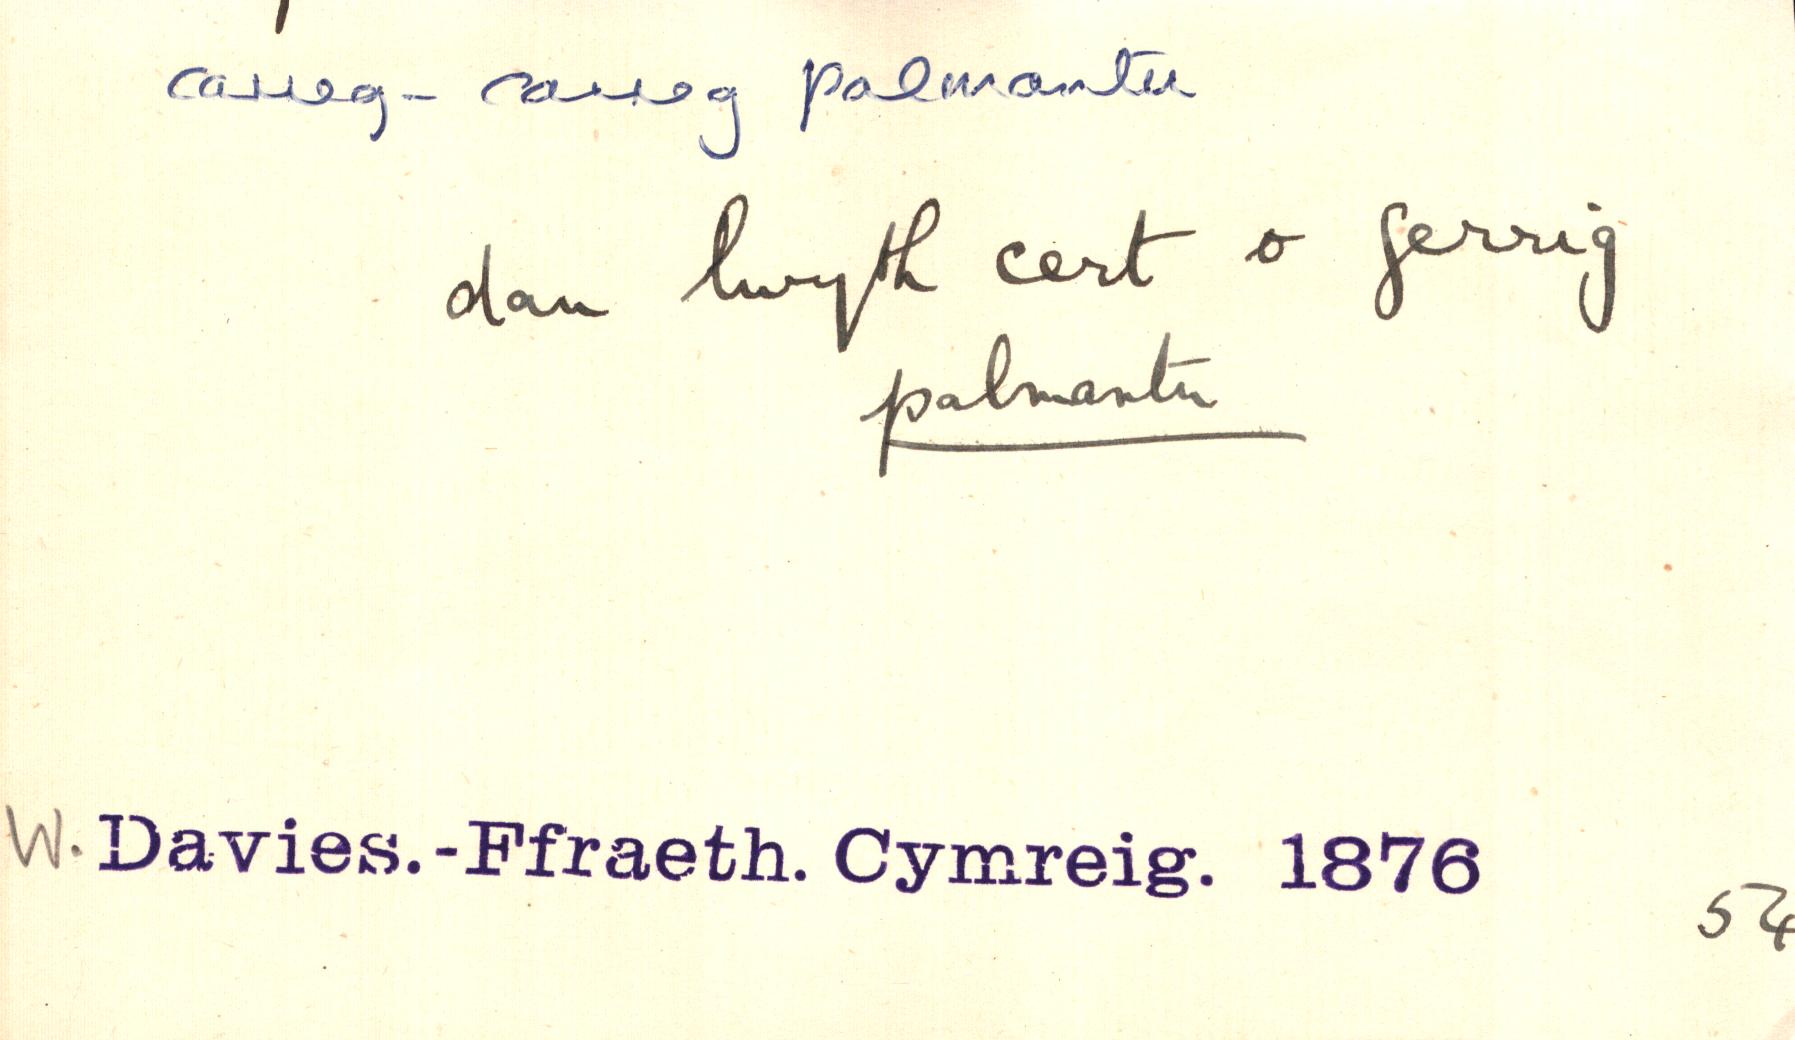 carreg - carreg palmantu
dan lwyth cert o gerrig
palmantu
W. Davies.-Ffraeth. Cymreig. 1876
54